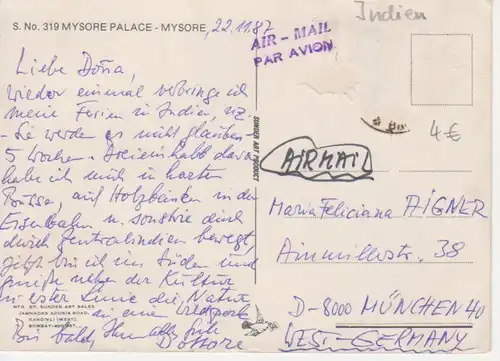 Indien
S. No. 319 MYSORE PALACE - MYSORE, 22.11.87
AIR-MAIL
PAR AVION
4€
Liebe Doña,
wieder einmal verbringe ich
meine Ferien in Indien,
- Sie werden es nicht glauben -
5 Wochen. Dreieinhalb davon
habe ich mich in
auf Holzbänken in der
Eisenbahn u. sonstwie
durch Zentralindien bewegt,
jetzt bin ich im Süden und
neben der Kultur
in erster Linie die Natur
in einem Wildpark
Bis bald, Ihr
Dottore
SUNDER ART PRODUCT
AIRMAIL
Maria Feliciana AIGNER
Ainmillerstr. 38
D-8000 MÜNCHEN 40
WEST-GERMANY
MFG. BY. SUNDER ART SALES
JAMNADES ADUKIA ROAD,
KANDIVLI (WEST)
BOMBAY-400 067.